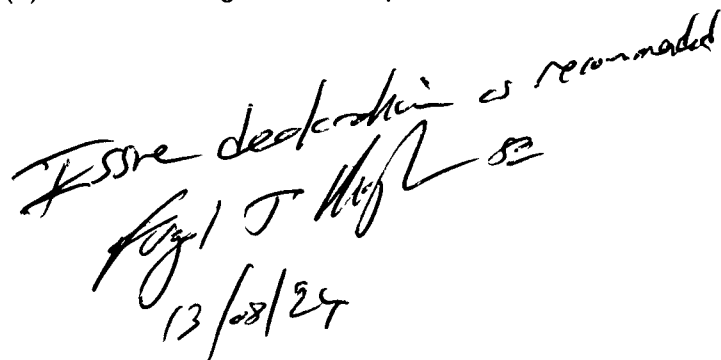 Issue declaration as recommended
J
SE
13/08/24